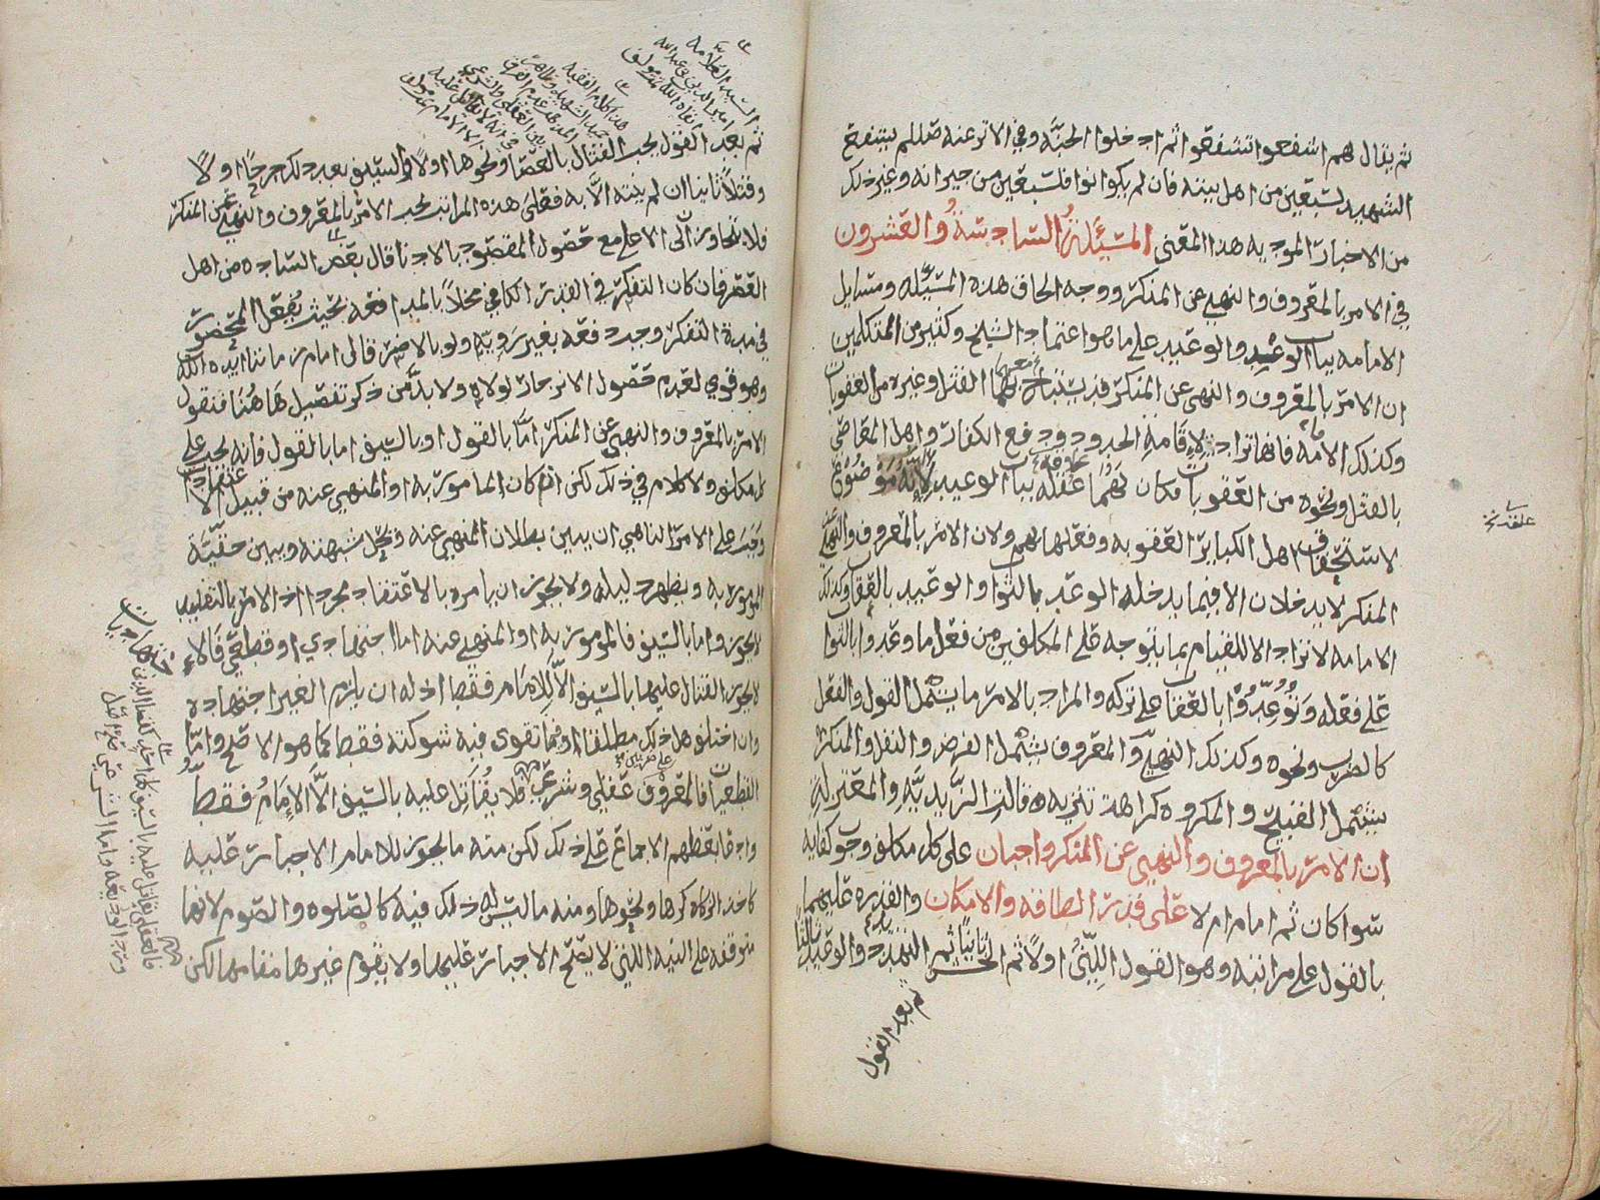 ثم يقال لهم اشفعوا تشفعوا ثم ادخلوا الجنة وفي الاثر عنه صللم يشفع
الشهيد لسبعين من اهل بيته فان لم يكونوا فلسبعين من جيرانه وغير ذلك
من الاخبار الموديه هذا المعنى المسئلة السادسة والعشرون
في الامر بالمعروف والنهي عن المنكر ووجه الحاق هذه المسئله ومسايل
الامامه بباب الوعد والوعيد على ما هو اعتماد الشيخ وكثير من المتكلمين
ان الامر بالمعروف والنهي عن المنكر قد يستباح بهما القتل وغيره من العقوبات
وكذلك الامامه فانها تراد لاقامة الحدود ودفع الكفار واهل المعاصي
بالقتل ونحوه من العقوبات فكان لهما علقه بباب الوعيد لانه موضوع
لاستحقاق اهل الكباير العقوبه وفعلها بهم ولان الامر بالمعروف والنهي عن
المنكر لا يدخلان الا فيما يدخله الوعد بالثواب والوعيد بالعقاب وكذلك
الامامه لا تراد الا للقيام بما يتوجه على المكلفين من فعل ما وعدوا بالثواب
على فعله وتوعدوا بالعقاب على تركه والمراد بالامر ما يشمل القول والفعل
كالضرب ونحوه وكذلك النهي والمعروف يشمل الفرض والنفل والمنكر
يشمل القبيح والمكروه كراهة تنزيه قالت الزيدية والمعتزلة
ان الامر بالمعروف والنهي عن المنكر واجبان على كل مكلف وجوب كفايه
سوا كان ثم امام ام لا على قدر الطاقه والامكان والقدره عليهما
بالقول على مراتبه وهو القول اللين اولا ثم الخشن ثانيا ثم التهدد والوعيد ثالثا
ثم بعد القول
ثم بعد القول يجب القتال بالعصا ونحوها اولا والسيف بعد ذلك جرحا اولا
وقتلا ثانيا ان لم ينته الا به فعلى هذه المراتب يجب الامر بالمعروف والنهي عن المنكر
فلا يتجاوز الى الاعلى مع حصول المقصود بالادنا قال بعض الساده من اهل
العصر فان كان التفكر في القدر الكافي مخلا بالمدافعه بحيث يفعل المحظور
في مدة التفكر وجب دفعه بغير روية ولو بالاضر قال امام زماننا ايده الله
وهو قوي لعدم حصول الانزجار لولاه ولا بد من ذكر تفصيل هاهنا فنقول
الامر بالمعروف والنهي عن المنكر اما بالقول او بالسيف اما بالقول فانه يجب على
كل مكلف ولا كلام في ذلك لكن ان كان المامور به او المنهي عنه من قبيل الاعتقادات
وجب على الامر الناهي ان يبين بطلان المنهي عنه ويحل شبهته ويبين حقية
المامور به ويظهر دليله ولا يجوز ان يامره بالاعتقاد مجردا اذ الامر بالتقليد
لا يجوز واما بالسيف فالمامور به او المنهي عنه اما اجتهادي او قطعي فالاول
لا يجوز القتال عليهما بالسيف الا للامام فقط اذ له ان يلزم الغير اجتهاده
وان اختلف هل ذلك مطلقا او فيما تقوى فيه شوكته فقط كما هو الاصح واما
القطعيات فالمعروف عقلي وشرعي فلا يقاتل عليه بالسيف الا الامام فقط
وادعا بعضهم الاجماع على ذلك لكن منه ما يجوز للامام الاجبار عليه
كاخذ الزكاه كرها ونحوها ومنه ما ليس له ذلك فيه كالصلوه والصوم لانها
متوقفه على النيه التي لا يصح الاجبار عليها ولا يقوم غيرها مقامها لكن